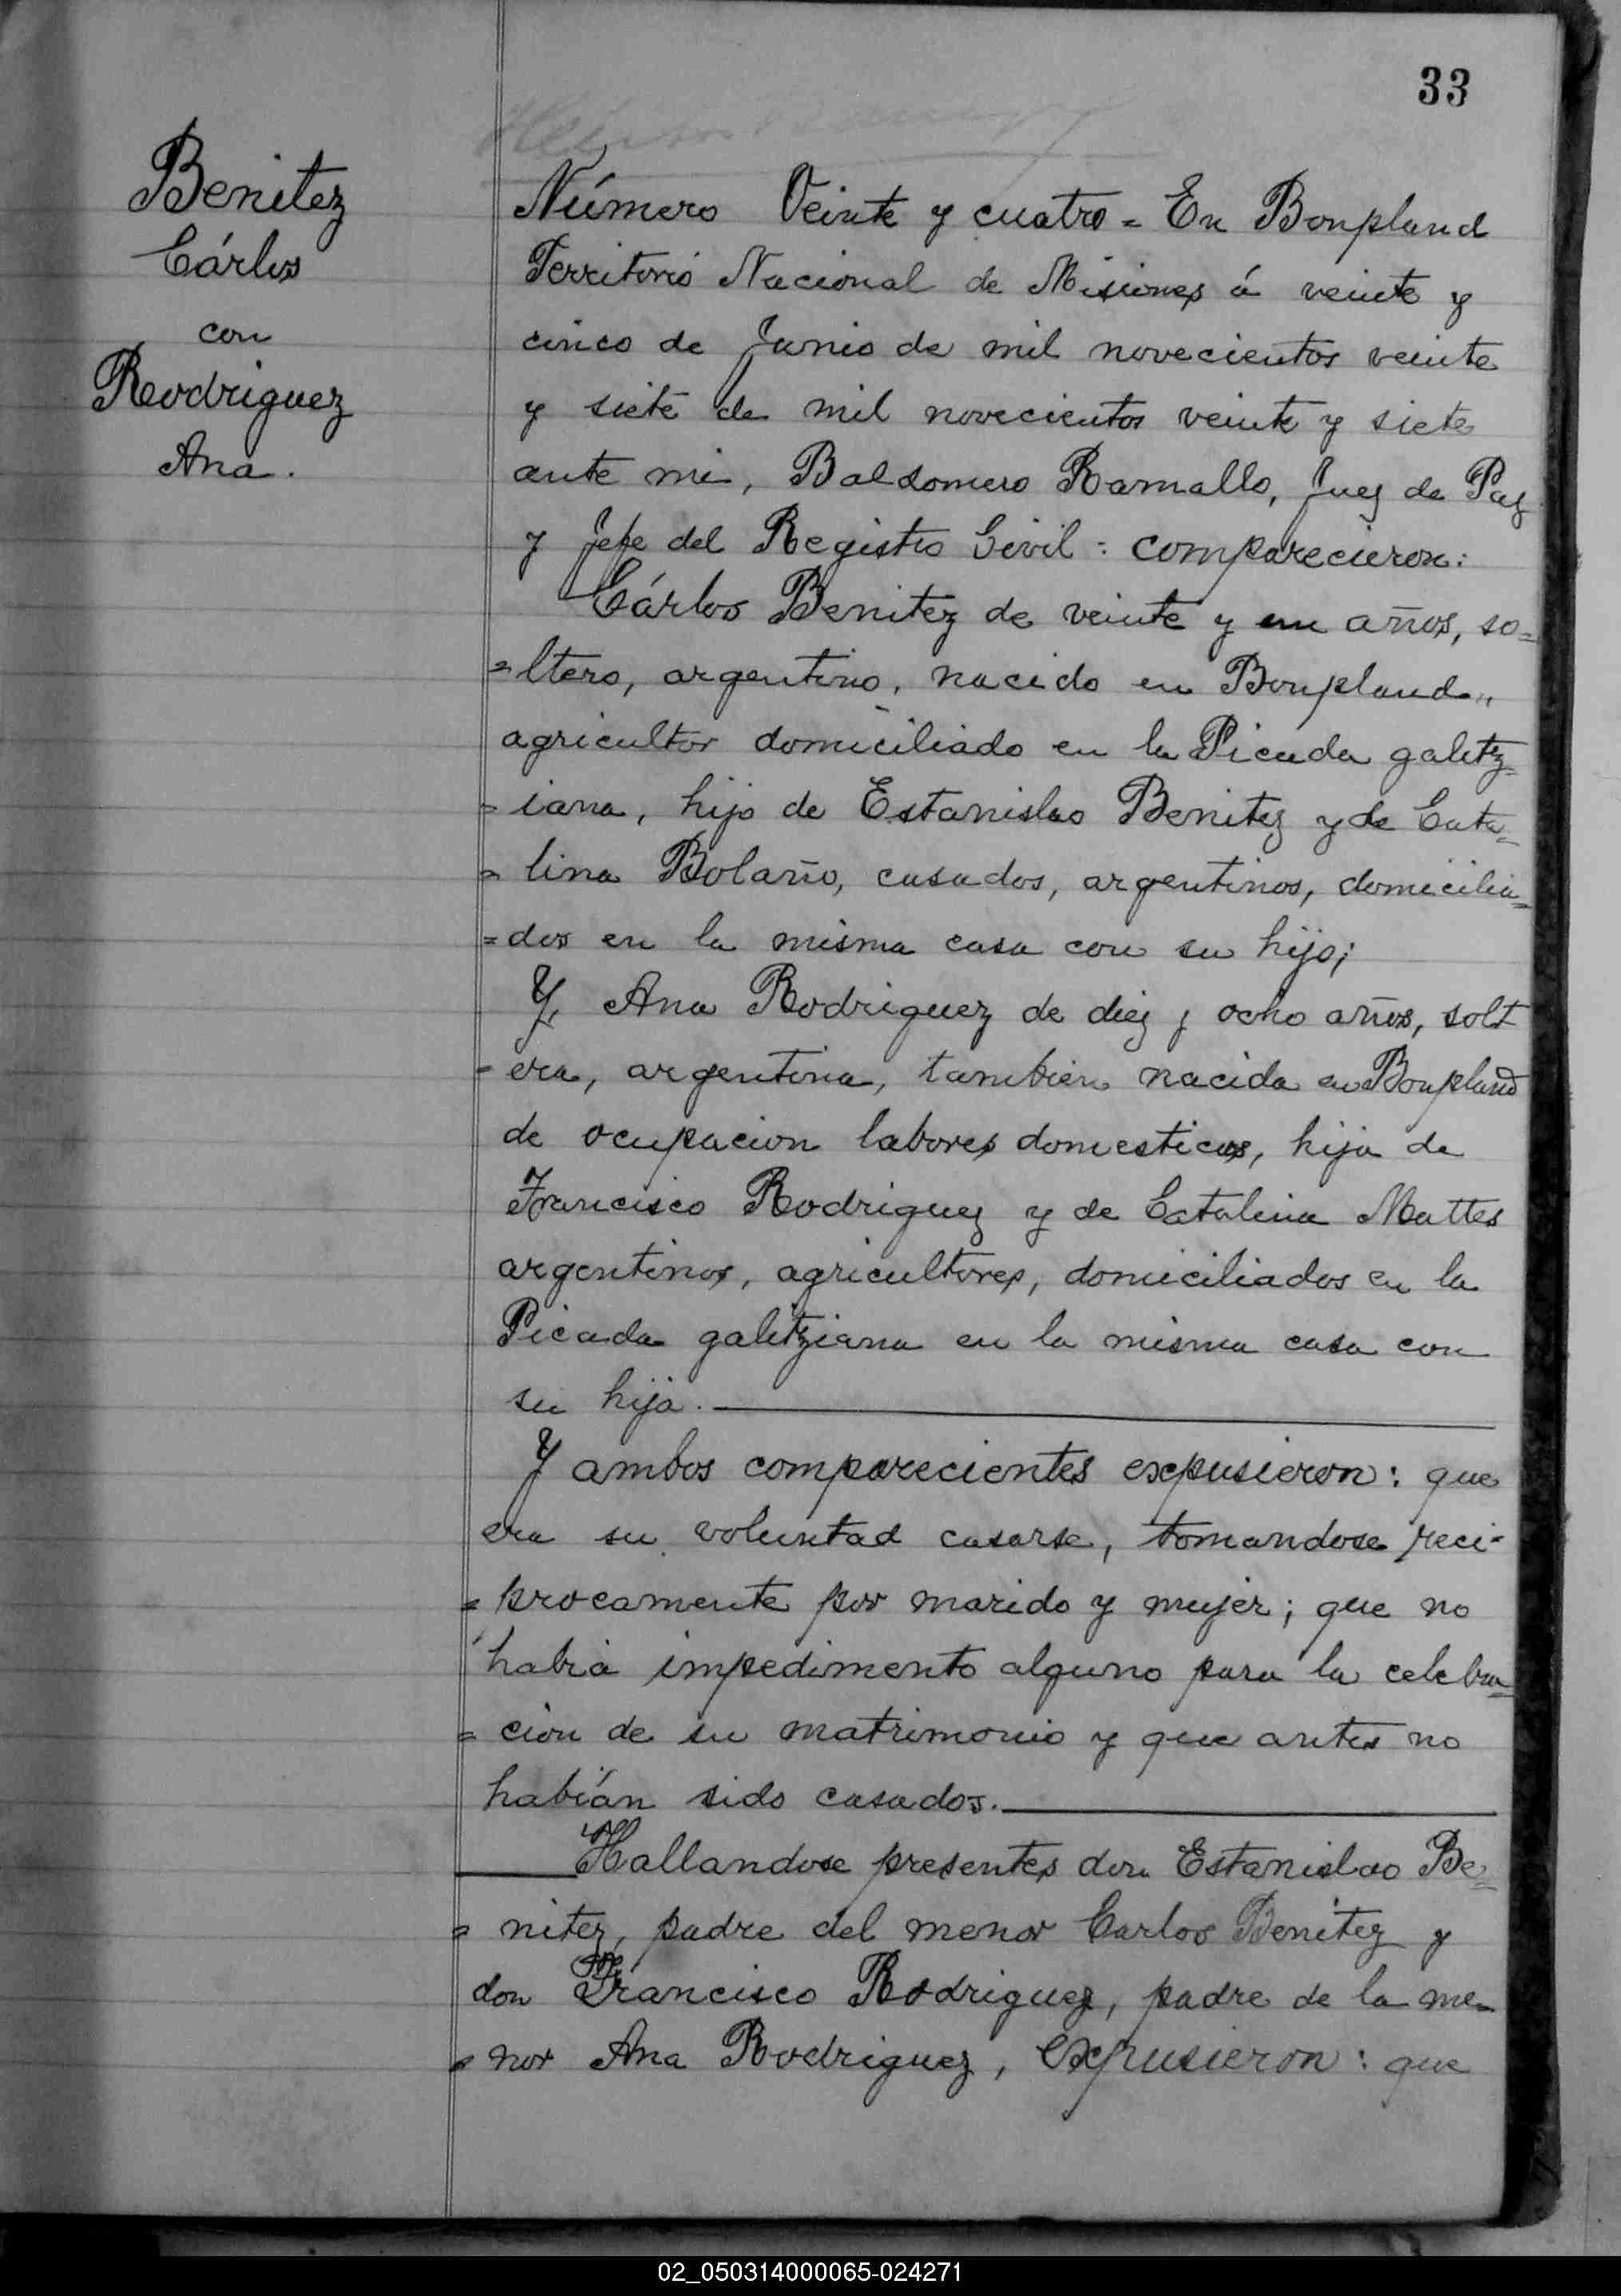 33
Benitez
Cárlos
con
Rodriguez
Ana.
Número Veinte y cuatro = En Bonpland
Territorio Nacional de Misiones á veinte y
cinco de Junio de mil novecientos veinte
y siete de mil novecientos veinte y siete
ante mi, Baldomero Ramallo, Juez de Paz
y Jefe del Registro Civil: comparecieron:
Cárlos Benitez de veinte y un años, so=
=ltero, argentino, nacido en Bonpland,,
agricultor domiciliado en la Picada galitz=
=iana, hijo de Estanislao Benitez y de Cata=
=lina Bolaño, casados, argentinos, domicilia=
=dos en la misma casa con su hijo;
Y, Ana Rodriguez de diez y ocho años, solt
-era, argentina, tambien nacida en Bonpland
de ocupacion labores domesticas, hija de
Francisco Rodriguez y de Catalina Mattes
argentinos, agricultores, domiciliados en la
Picada galitziana en la misma casa con
su hija.
Y ambos comparecientes expusieron: que
era su voluntad casarse, tomandose reci-
=procamente por marido y mujer; que no
habia impedimento alguno para la celebra=
=cion de su matrimonio y que antes no
habián sido casados.
Hallandose presentes don Estanislao Be=
=nitez, padre del menor Carlos Benitez y
don Francisco Rodriguez, padre de la me=
=nor Ana Rodriguez, expusieron: que
02_050314000065-024271